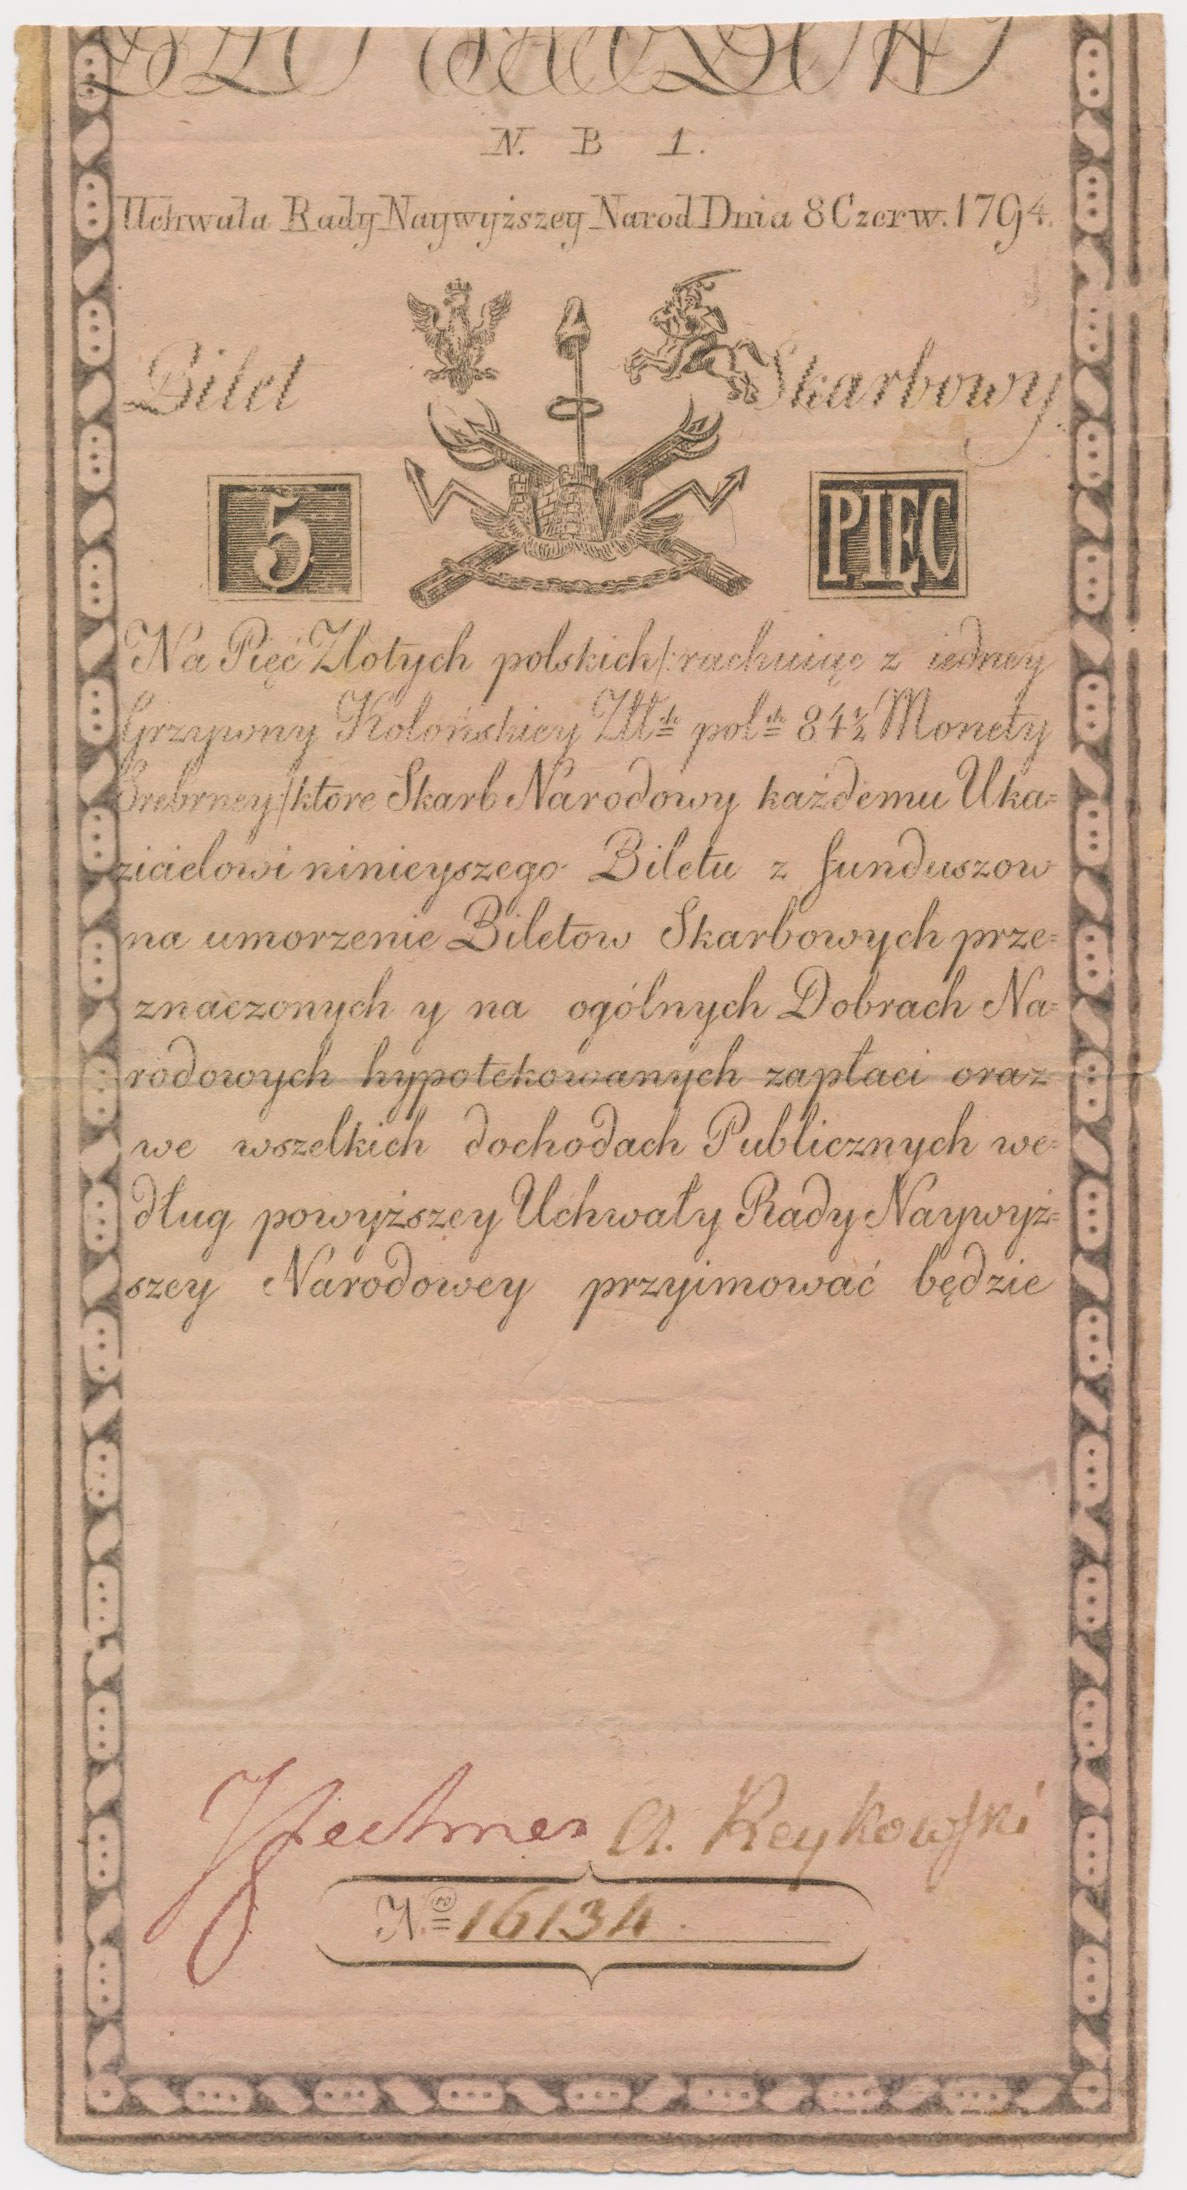 N. B 1.
Uchwała Rady Naywyższey Narod Dnia 8 Czerw. 1794.
Bilet Skarbowy
5 PIĘC
Na Pięć Złotych polskich /: rachuiąc z iedney
Grzywny Kolońskiey Złł.ch pol.ch 84½ Monety
Srebrney /: ktore Skarb Narodowy każdemu Uka=
zicielowi ninieyszego Biletu z funduszow
na umorzenie Biletow Skarbowych prze=
znaczonych y na ogólnych Dobrach Na=
rodowych hypotekowanych zapłaci oraz
we wszelkich dochodach Publicznych we=
dług powyższey Uchwały Rady Naywyż=
szey Narodowey przyimować będzie
B S
A. Reykowski
N.ro 16134.